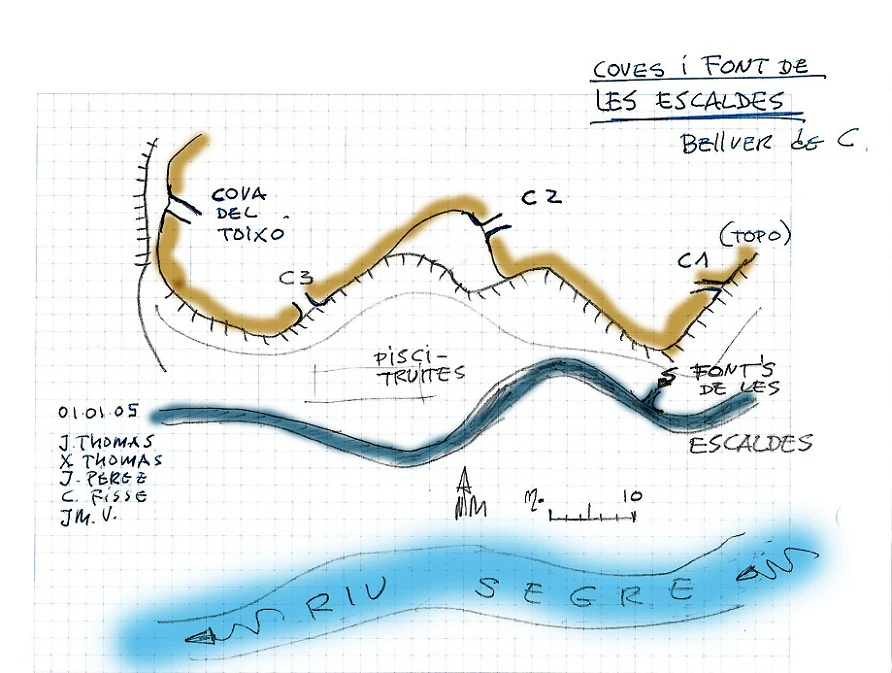 COVES i FONT DE
LES ESCALDES
BELLVER de C.
COVA
DEL
TOIXÓ
C 2
(TOPO)
C1
C3
PISCI-
TRUITES
FONT'S
DE LES
ESCALDES
01.01.05
J. THOMAS
X THOMAS
J. PEREZ
C. FISSE
JM. V.
NM
m. 10
RIU SEGRE